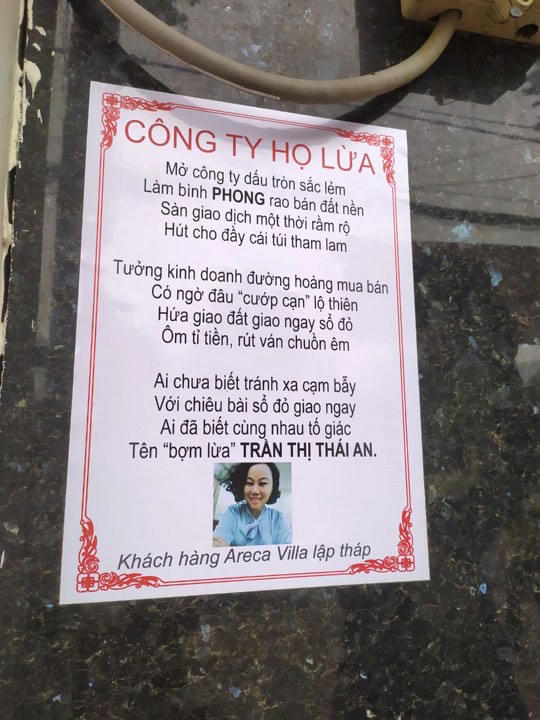 CÔNG TY HỌ LỪA
Mở công ty dấu tròn sắc lẻm
Làm bình PHONG rao bán đất nền
Sàn giao dịch một thời rầm rộ
Hút cho đầy cái túi tham lam
Tưởng kinh doanh đường hoàng mua bán
Có ngờ đâu “cướp cạn” lộ thiên
Hứa giao đất giao ngay sổ đỏ
Ôm tỉ tiền, rút ván chuồn êm
Ai chưa biết tránh xa cạm bẫy
Với chiêu bài sổ đỏ giao ngay
Ai đã biết cùng nhau tố giác
Tên “bợm lừa” TRẦN THỊ THÁI AN.
Khách hàng Areca Villa lập tháp